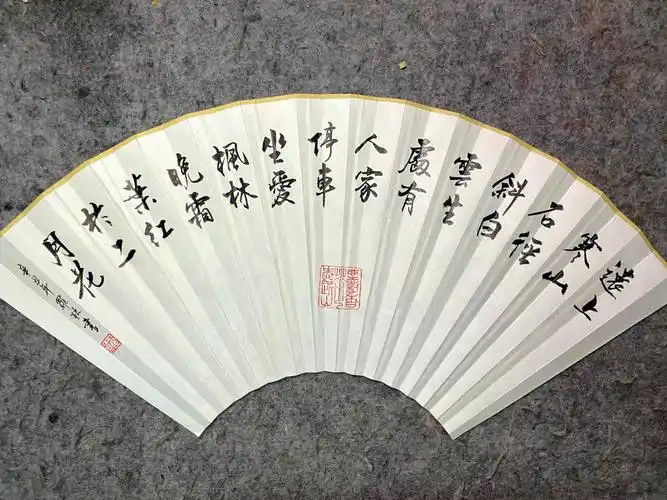 遠上
寒山
石徑
斜白
雲生
處有
人家
停車
坐愛
楓林
晚霜
葉紅
於二
月花
辛丑年